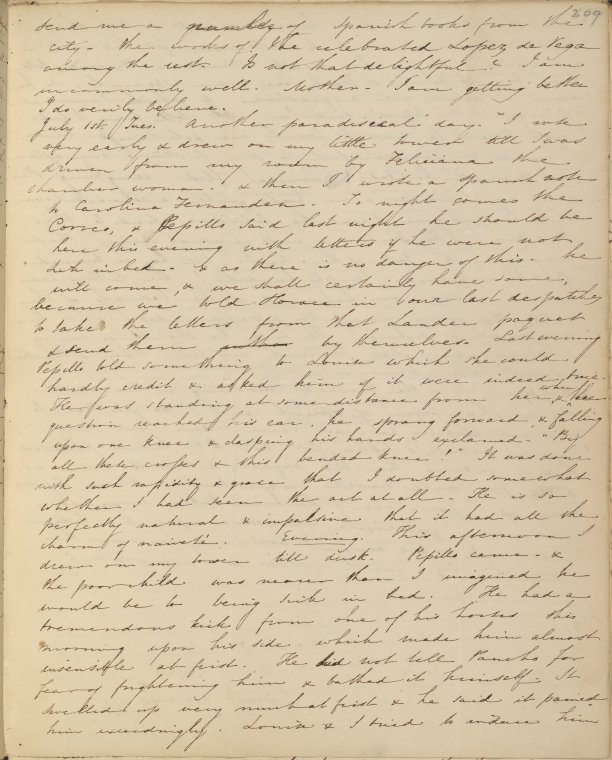 209
send me a number of Spanish books from the
city - the works of the celebrated Lopez de Vega
among the rest. Is not that delightful? I am
uncommonly well. Mother - I am getting better
I do verily believe.
July 1st. Tues. Another paradisical day. I rose
very early & drew on my little tower till I was
driven from my room by Feliciana the
chamber woman. & then I wrote a Spanish note
to Carolina Fernandez. To night comes the
Correo, & Pepillo said last night he should be
here this evening with letters if he were not
sick in bed. & as there is no danger of this - he
will come, & we shall certainly have some,
because we told Horace in our last despatches
to take the letters from that Lander paquet
& send them by themselves. Last evening
Pepillo told something to Louisa which she could
hardly credit & asked him if it were indeed true.
He was standing at some distance from her, & when the
question reached his ear he sprang forward & falling
upon one knee & clasping his hands exclaimed - "By
all these crosses & this bended knee!" It was done
with such rapidity & grace that I doubted somewhat
whether I had seen the act at all - He is so
perfectly natural & impulsive that it had all the
charm of naiveté. Evening. This afternoon I
drew on my tower till dusk. Pepillo came - &
the poor child was nearer than I imagined he
would be to being sick in bed. He had a
tremendous kick from one of his horses this
morning upon his side which made him almost
insensible at first. He did not tell Pancho for
fear of frightening him & bathed it himself. It
swelled up very much at first & he said it pained
him exceedingly. Louisa & I tried to induce him